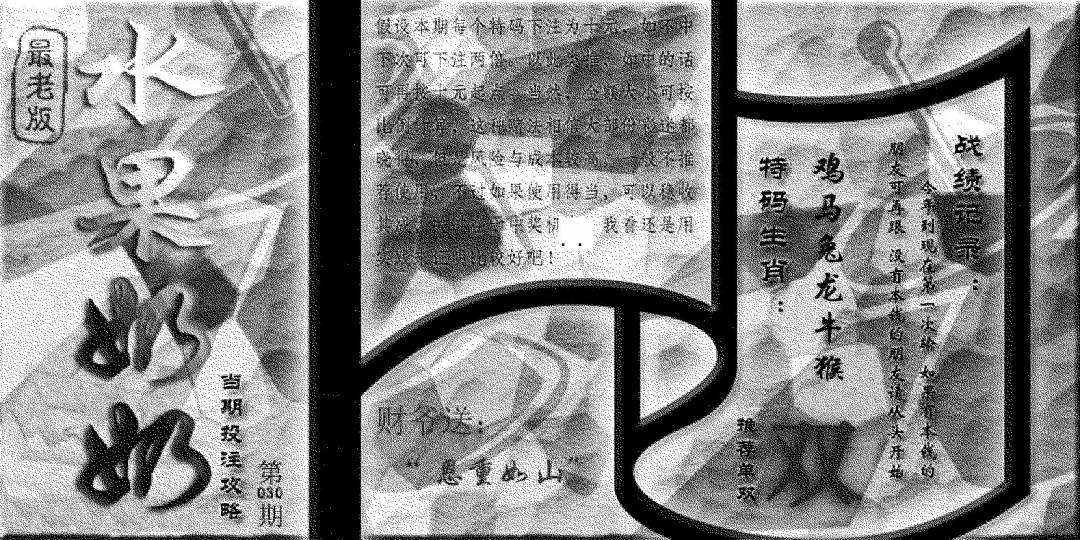 最老版
水果奶奶
当期投注攻略
第030期
假设本期每个特码下注为十元，如不中
下次可下注两倍，以此类推，如中的话
可再按十元起点，当然，金额大小可按
比例
这种赌法相信大部份彩迷都
风险与成本较高，一般不推
荐使用，不过如果使用得当，可以稳收
中奖
我看还是用
比较好吧！
财爷送：
“恩重如山”
战绩记录：
今年到现在第一次输 如果有本钱的
朋友可再跟 没有本钱的朋友请从头开始
鸡马兔龙牛猴
特码生肖：
推荐单双
双